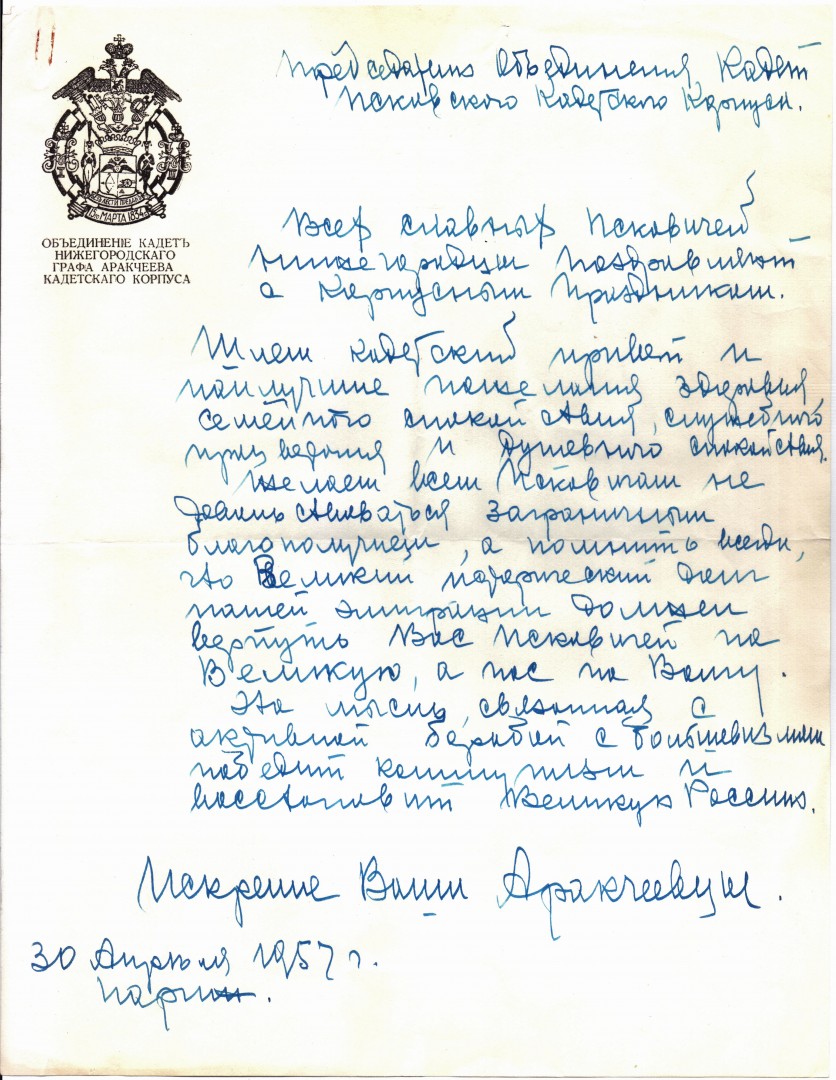 Председателю Объединения Кадет
Псковского Кадетского Корпуса.
15го МАРТА 1834 г.
ОБЪЕДИНЕНІЕ КАДЕТЪ
НИЖЕГОРОДСКАГО
ГРАФА АРАКЧЕЕВА
КАДЕТСКАГО КОРПУСА
Всех славных Псковичей
нижегородцы поздравляют
с Корпусным Праздником.
Шлем кадетский привет и
найлучшие пожелания здоровия,
семейного спокойствия, служебного
и душевного спокойствия.
Желаем всем Псковичам не
довольствоваться заграничным
благополучием, а помнить всегда,
что Великий долг
нашей эмиграции должен
вернуть Вас Псковичей на
Великую, а нас на Волгу.
Эта мысль, связанная с
активной борьбой с большевизмом
победит коммунизм и
восстановит Великую Россию.
Искренне Ваши Аракчеевцы.
30 Апреля 1957 г.
Париж.